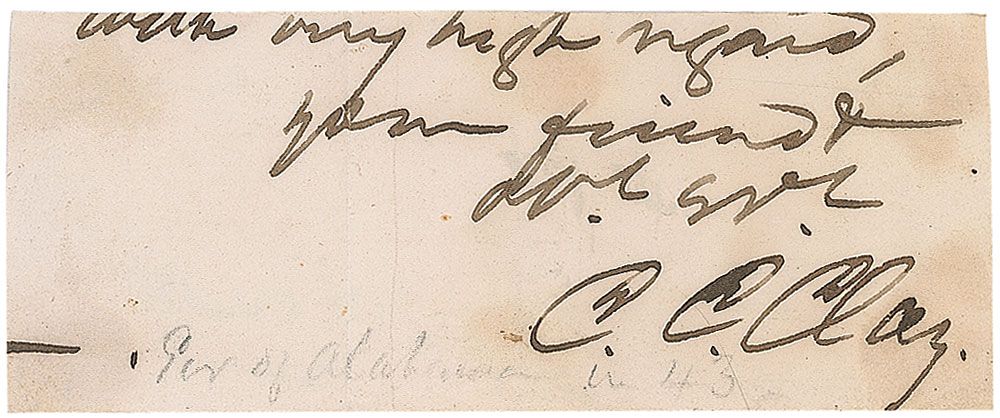 with very high regard,
your friend &
ob. svt.
C. C. Clay.
Gov of Alabama in 43